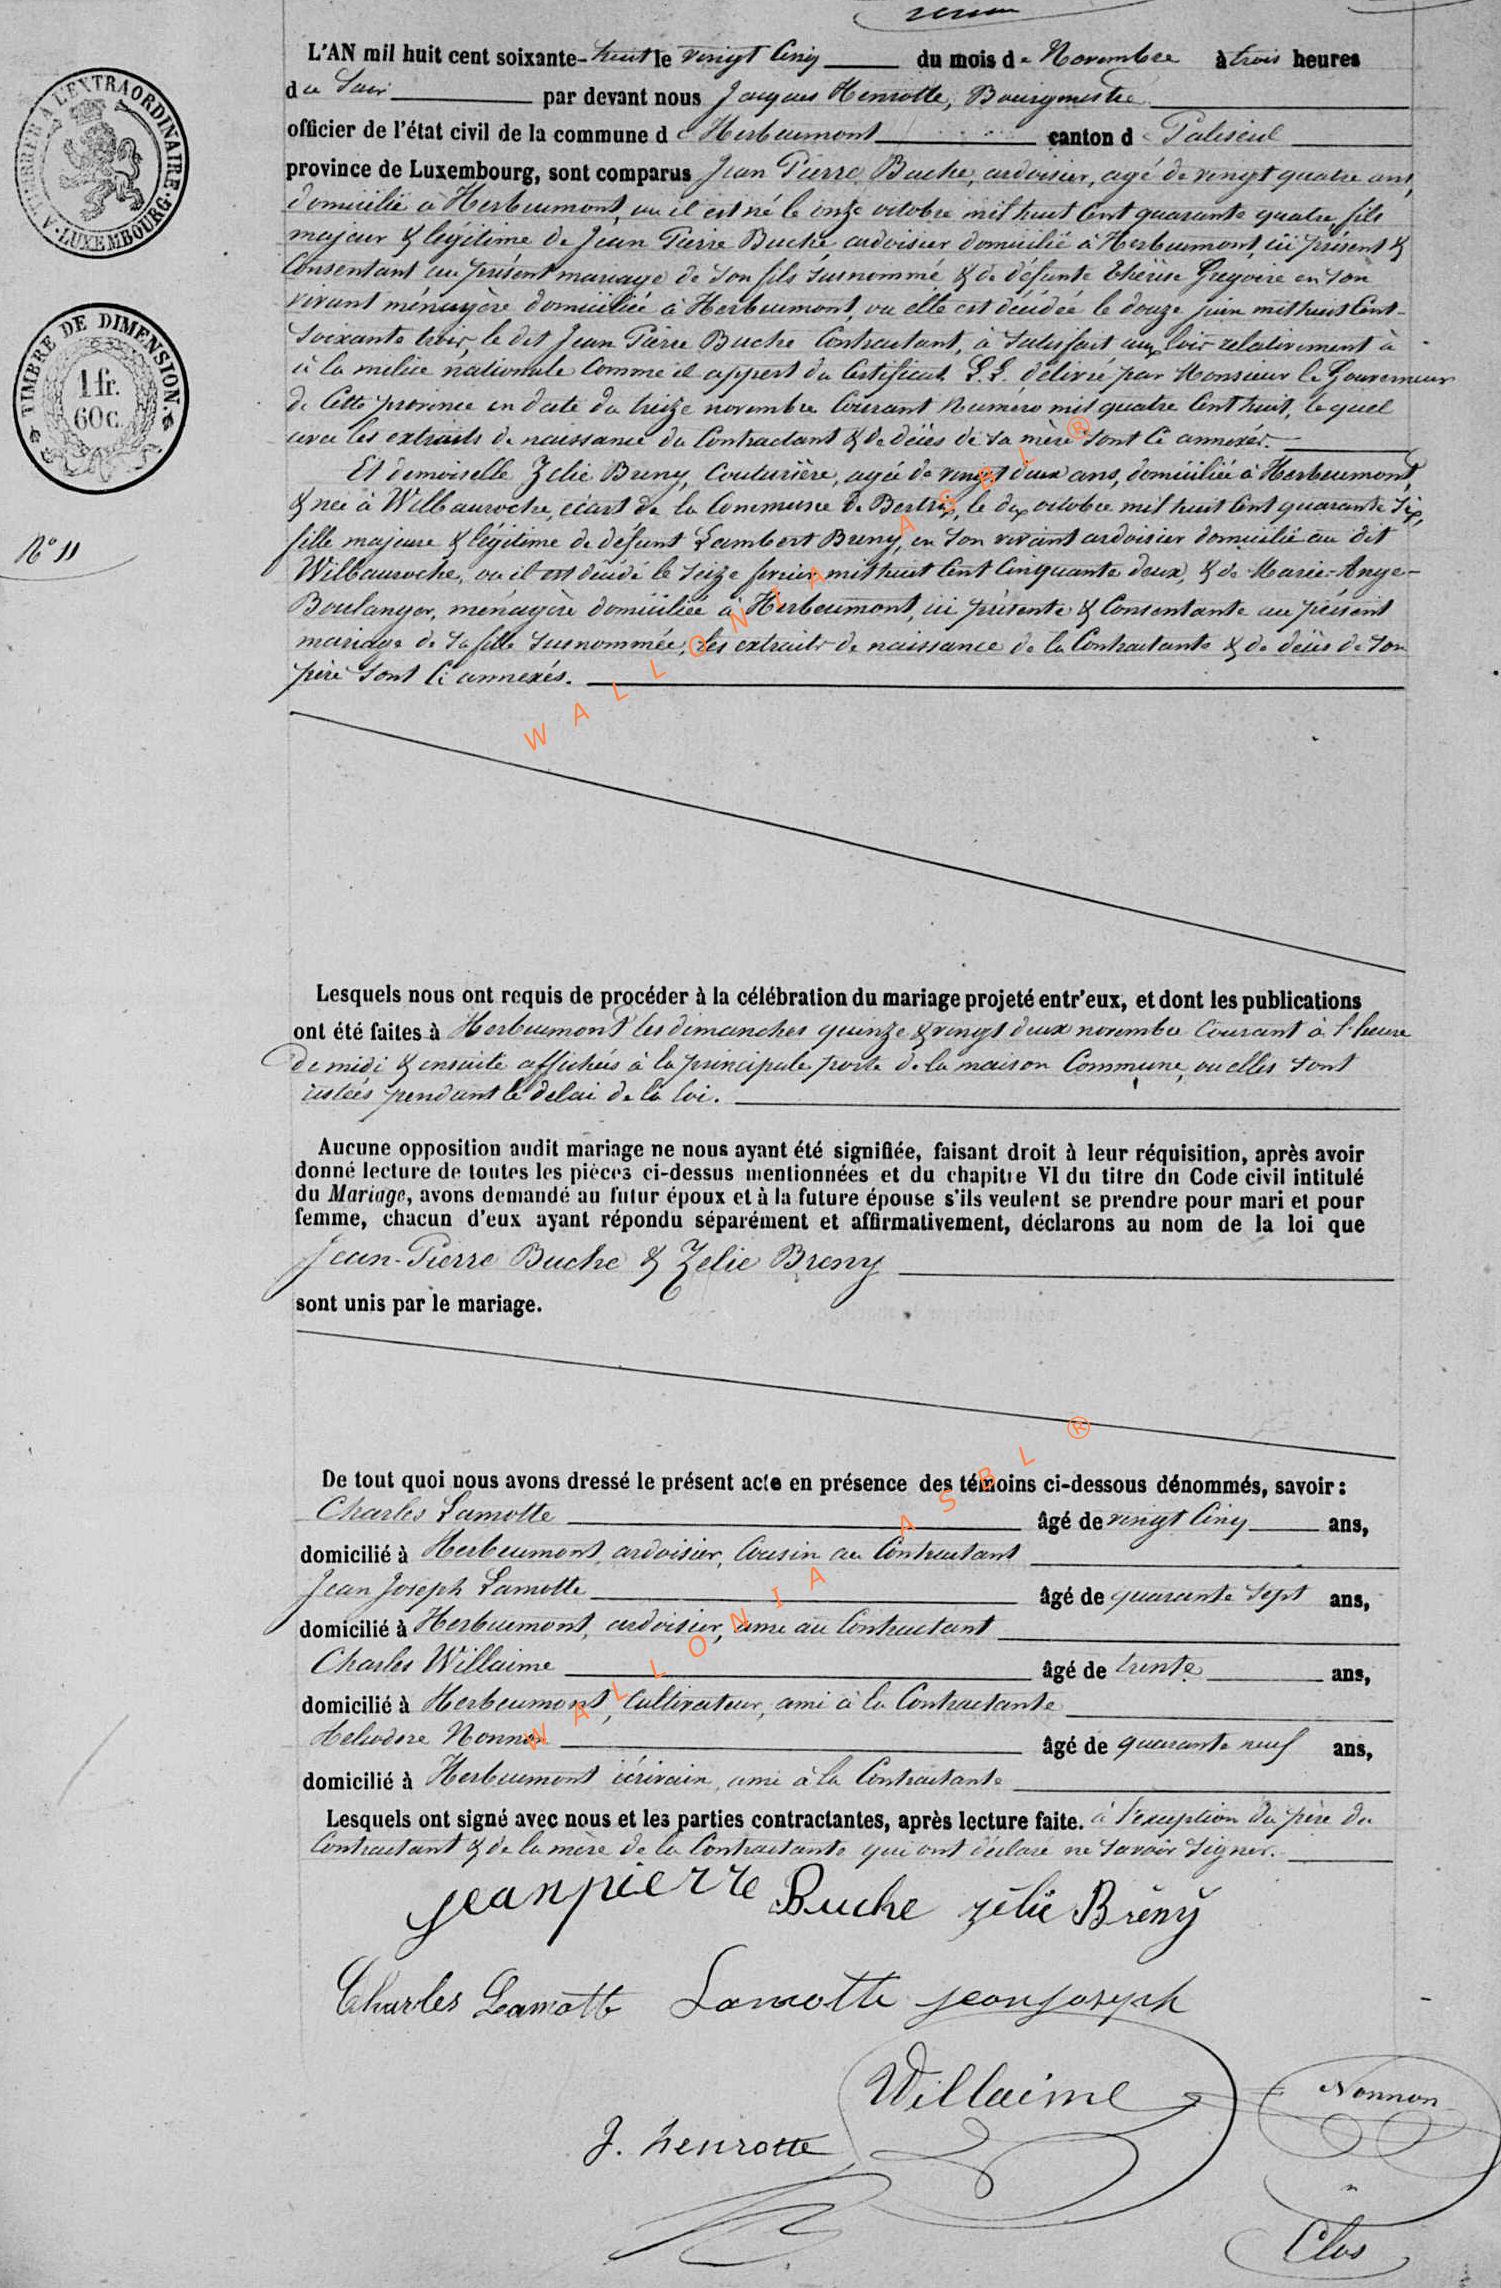 L'AN mil huit cent soixante-huit le vingt cinq du mois de Novembre à trois heures
du Soir par devant nous Jacques Henrotte, Bourgmestre
officier de l'état civil de la commune de Herbeumont canton de Paliseul
province de Luxembourg, sont comparus Jean Pierre Buche, ardoisier, agé de vingt quatre ans,
domicilié à Herbeumont, ou il est né le onze octobre mil huit Cent quarante quatre, fils
majeur & légitime de Jean Pierre Buche, ardoisier domicilié à Herbeumont, ici présent &
Consentant au présent mariage de son fils susnommé & de défunte Thérèse Gregoire en son
vivant ménagère domiciliée à Herbeumont, ou elle est décédée le douze juin mil huit Cent-
soixante trois, le dit Jean Pierre Buche Contractant, à satisfait aux lois relativement à
à la milice nationale Comme il appert du Certificat L.L. délivré par Monsieur le Gouverneur
de Cette province en date du treize novembre Courant Numéro mil quatre Cent huit, lequel
avec les extraits de naissance du Contractant & de décès de sa mère sont Ci annexés.
Et demoiselle Zelie Breny, Couturière, agée de vingt deux ans, domiciliée à Herbeumont,
& née à Wilbauroche, écart de la Commune de Bertrix, le dix octobre mil huit Cent quarante six,
fille majeure & légitime de défunt Lambert Breny, en son vivant ardoisier domicilié au dit
Wilbauroche, ou il est décédé le seize février mil huit Cent Cinquante deux, & de Marie-Ange-
Boulanger, ménagère domiciliée à Herbeumont, ici présente & Consentante au présent
mariage de sa fille susnommée, les extraits de naissance de la Contractante & de décès de son
père sont Ci annexés.
N° 11
A TIMBRER A L'EXTRAORDINAIRE. LUXEMBOURG.
TIMBRE DE DIMENSION.
1 fr.
60 c.
Lesquels nous ont requis de procéder à la célébration du mariage projeté entr'eux, et dont les publications
ont été faites à Herbeumont les dimanches quinze & vingt deux novembre Courant à l'heure
de midi & ensuite affichées à la principale porte de la maison Commune, ou elles sont
restées pendant le delai de la loi.
Aucune opposition audit mariage ne nous ayant été signifiée, faisant droit à leur réquisition, après avoir
donné lecture de toutes les pièces ci-dessus mentionnées et du chapitre VI du titre du Code civil intitulé
du Mariage, avons demandé au futur époux et à la future épouse s'ils veulent se prendre pour mari et pour
femme, chacun d'eux ayant répondu séparément et affirmativement, déclarons au nom de la loi que
Jean-Pierre Buche & Zelie Breny
sont unis par le mariage.
De tout quoi nous avons dressé le présent acte en présence des témoins ci-dessous dénommés, savoir :
Charles Lamotte âgé de vingt Cinq ans,
domicilié à Herbeumont, ardoisier, Cousin au Contractant
Jean Joseph Lamotte âgé de quarante sept ans,
domicilié à Herbeumont, ardoisier, ami au Contractant
Charles Willaime âgé de trente ans,
domicilié à Herbeumont, Cultivateur, ami à la Contractante
Heliodore Nonnon âgé de quarante neuf ans,
domicilié à Herbeumont écrivain, ami à la Contractante
Lesquels ont signé avec nous et les parties contractantes, après lecture faite. à l'exception du père du
Contractant & de la mère de la Contractante qui ont déclaré ne savoir signer.
jeanpierre Buche zélie Brény
Charles Lamotte Lamotte jeanjoseph
Willaime Nonnon
J. henrotte
Clos
WALLONIA ASBL ®
WALLONIA ASBL ®